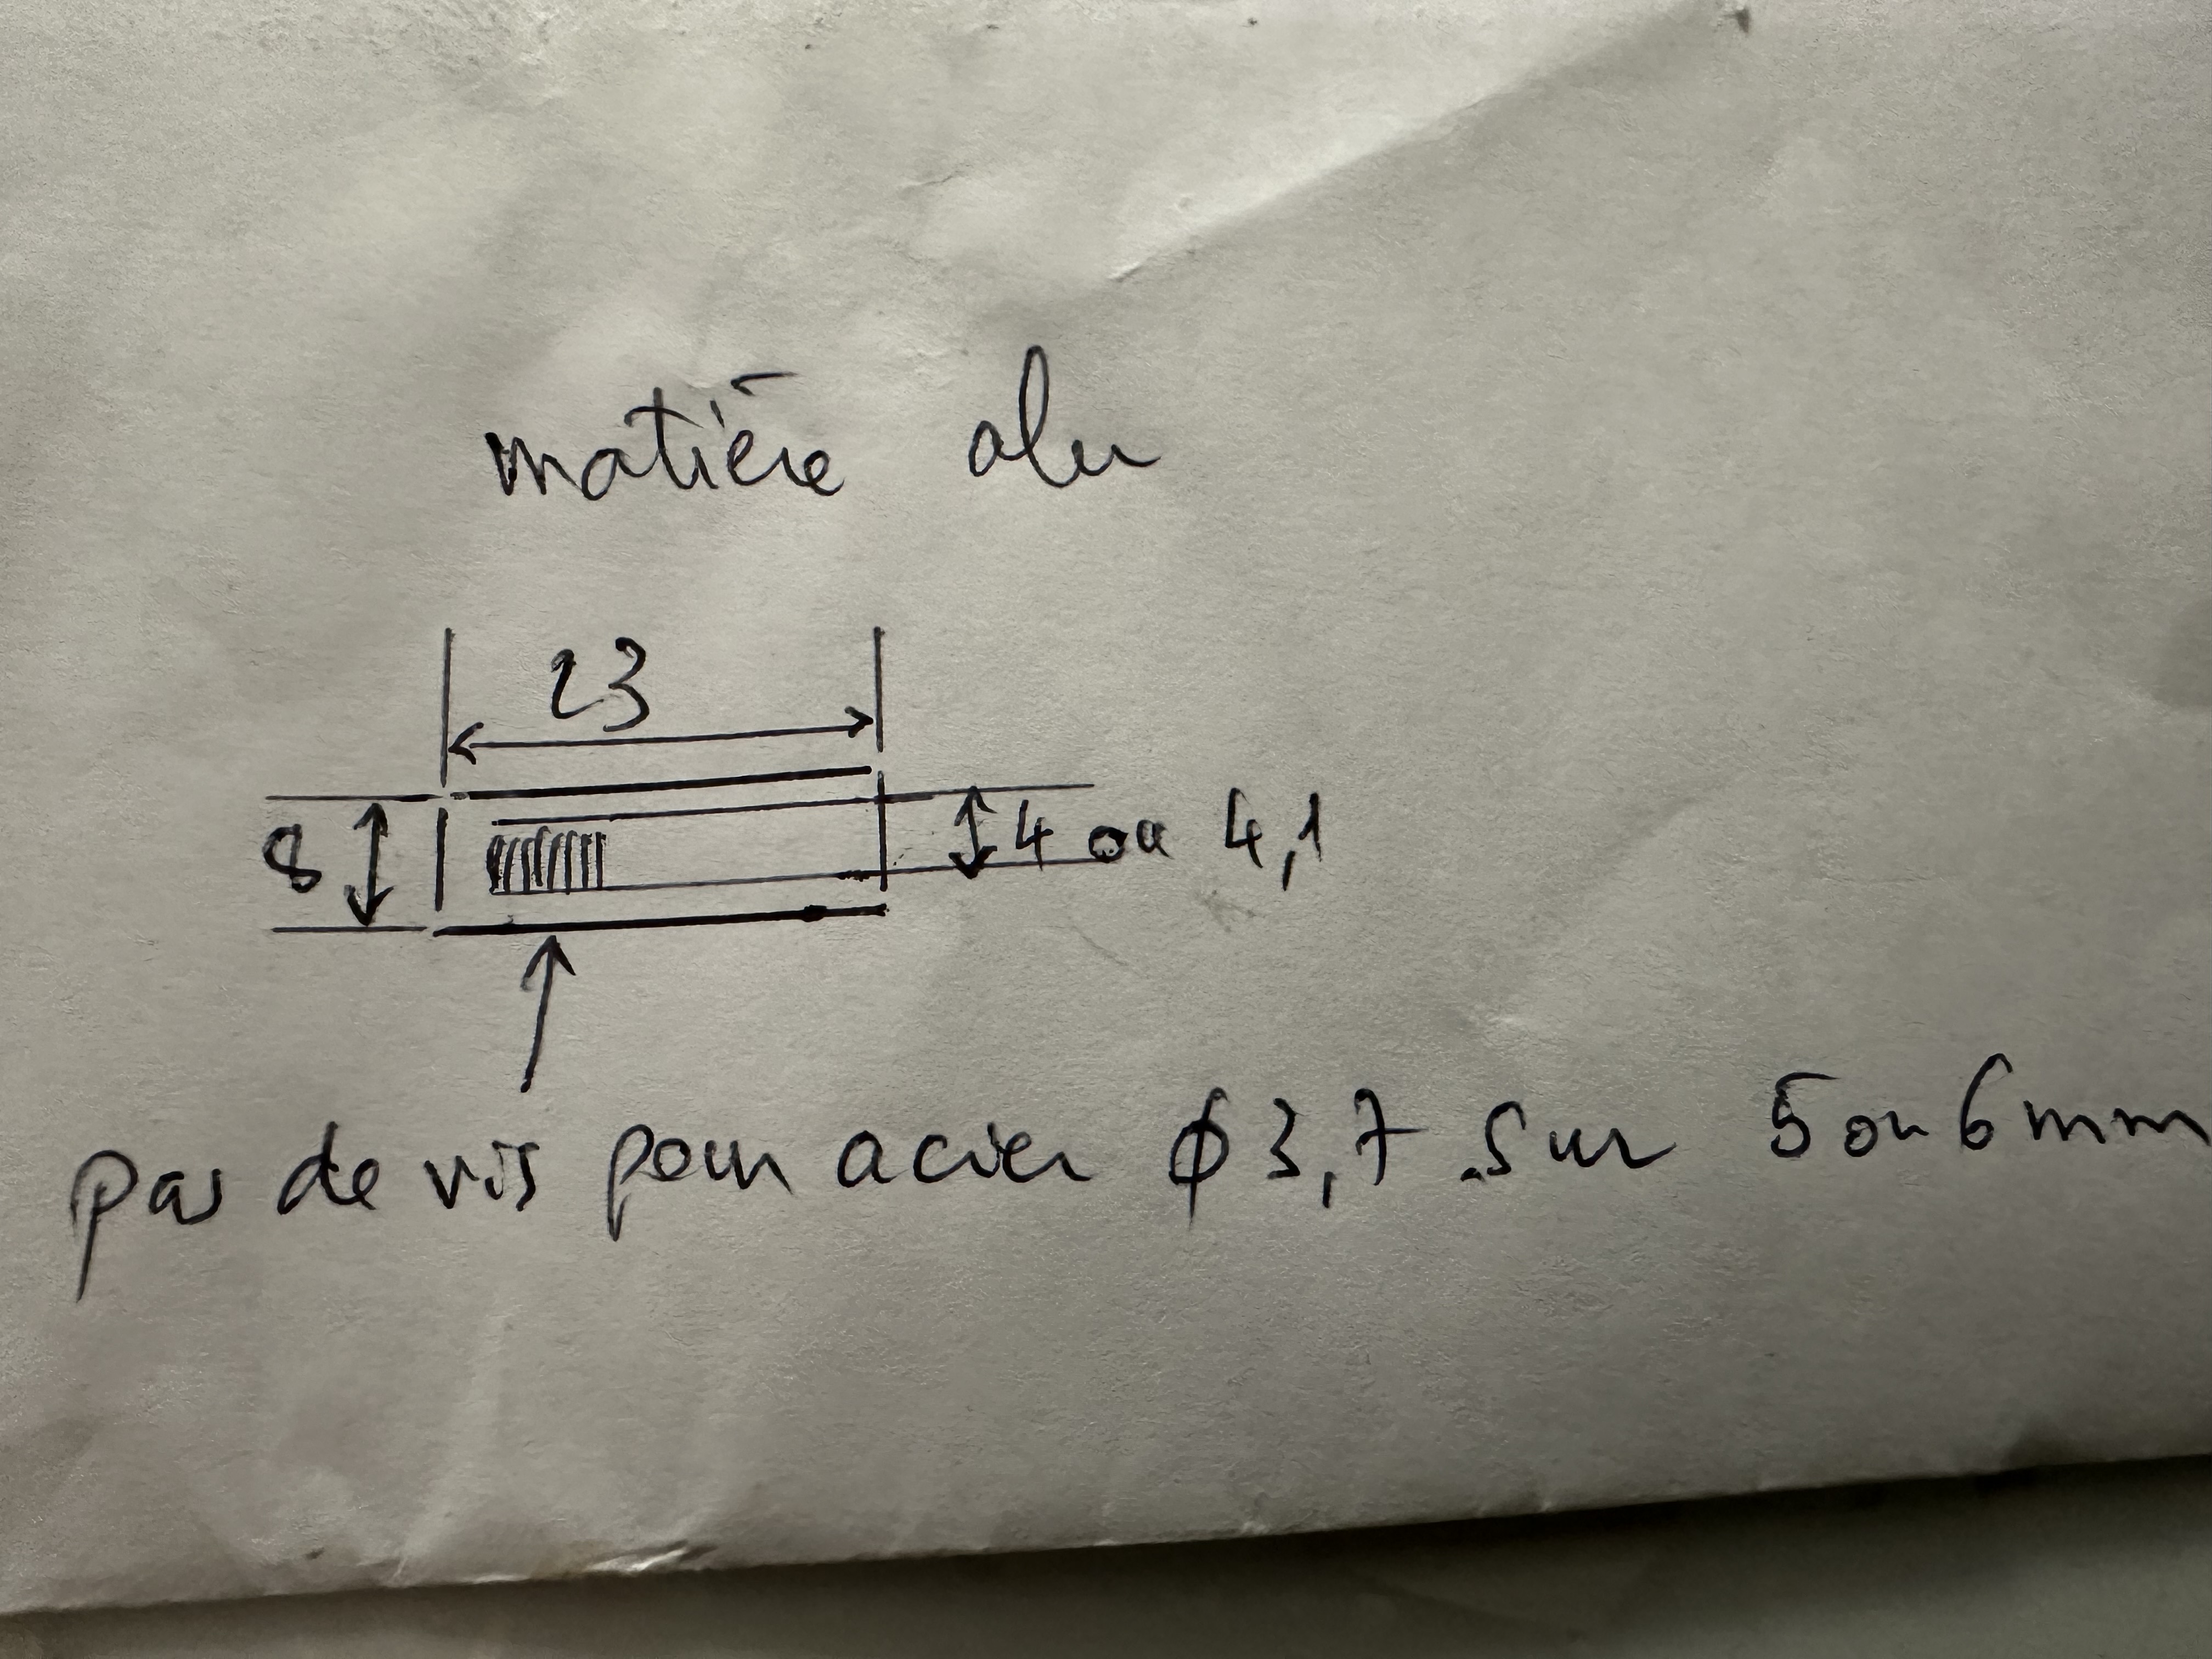 matière alu
23
8
4 ou 4,1
pas de vis pour acier ϕ 3,7 sur 5 ou 6 mm